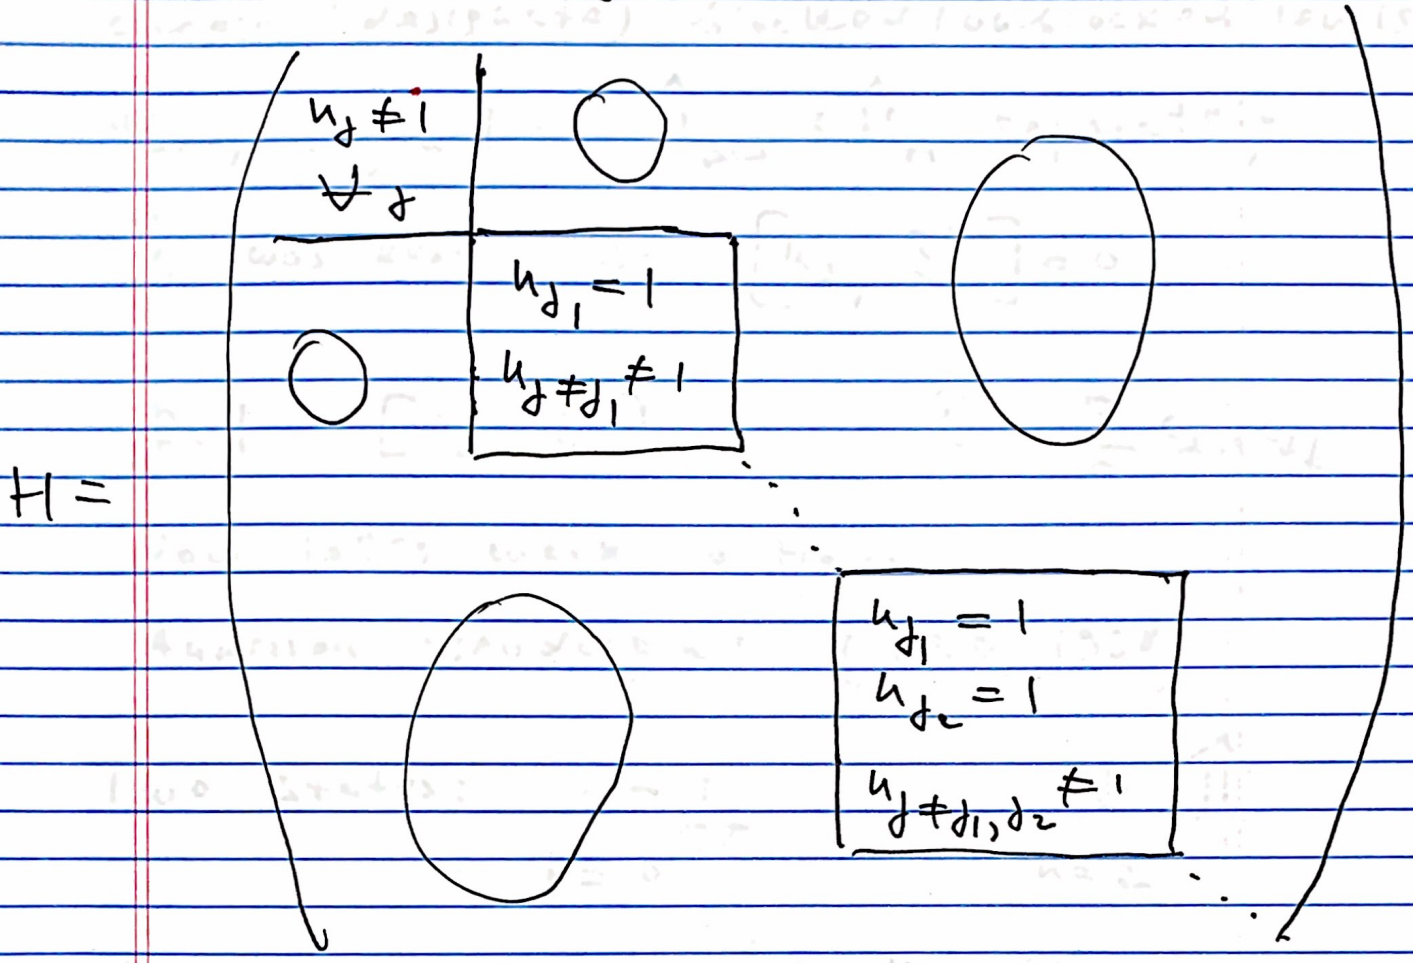 n_j ≠ 1
∀ j
n_{j_1} = 1
n_{j ≠ j_1} ≠ 1
H =
n_{j_1} = 1
n_{j_2} = 1
n_{j ≠ j_1, j_2} ≠ 1